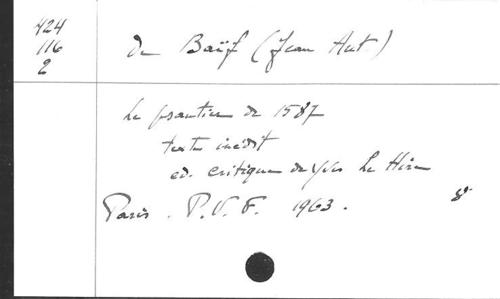 424
116
2
De Baïf (Jean Ant.)
Le psautier de 1587
texte inédit
ed. critique de Yves Le Hir
Paris. P.U.F. 1963. 8°